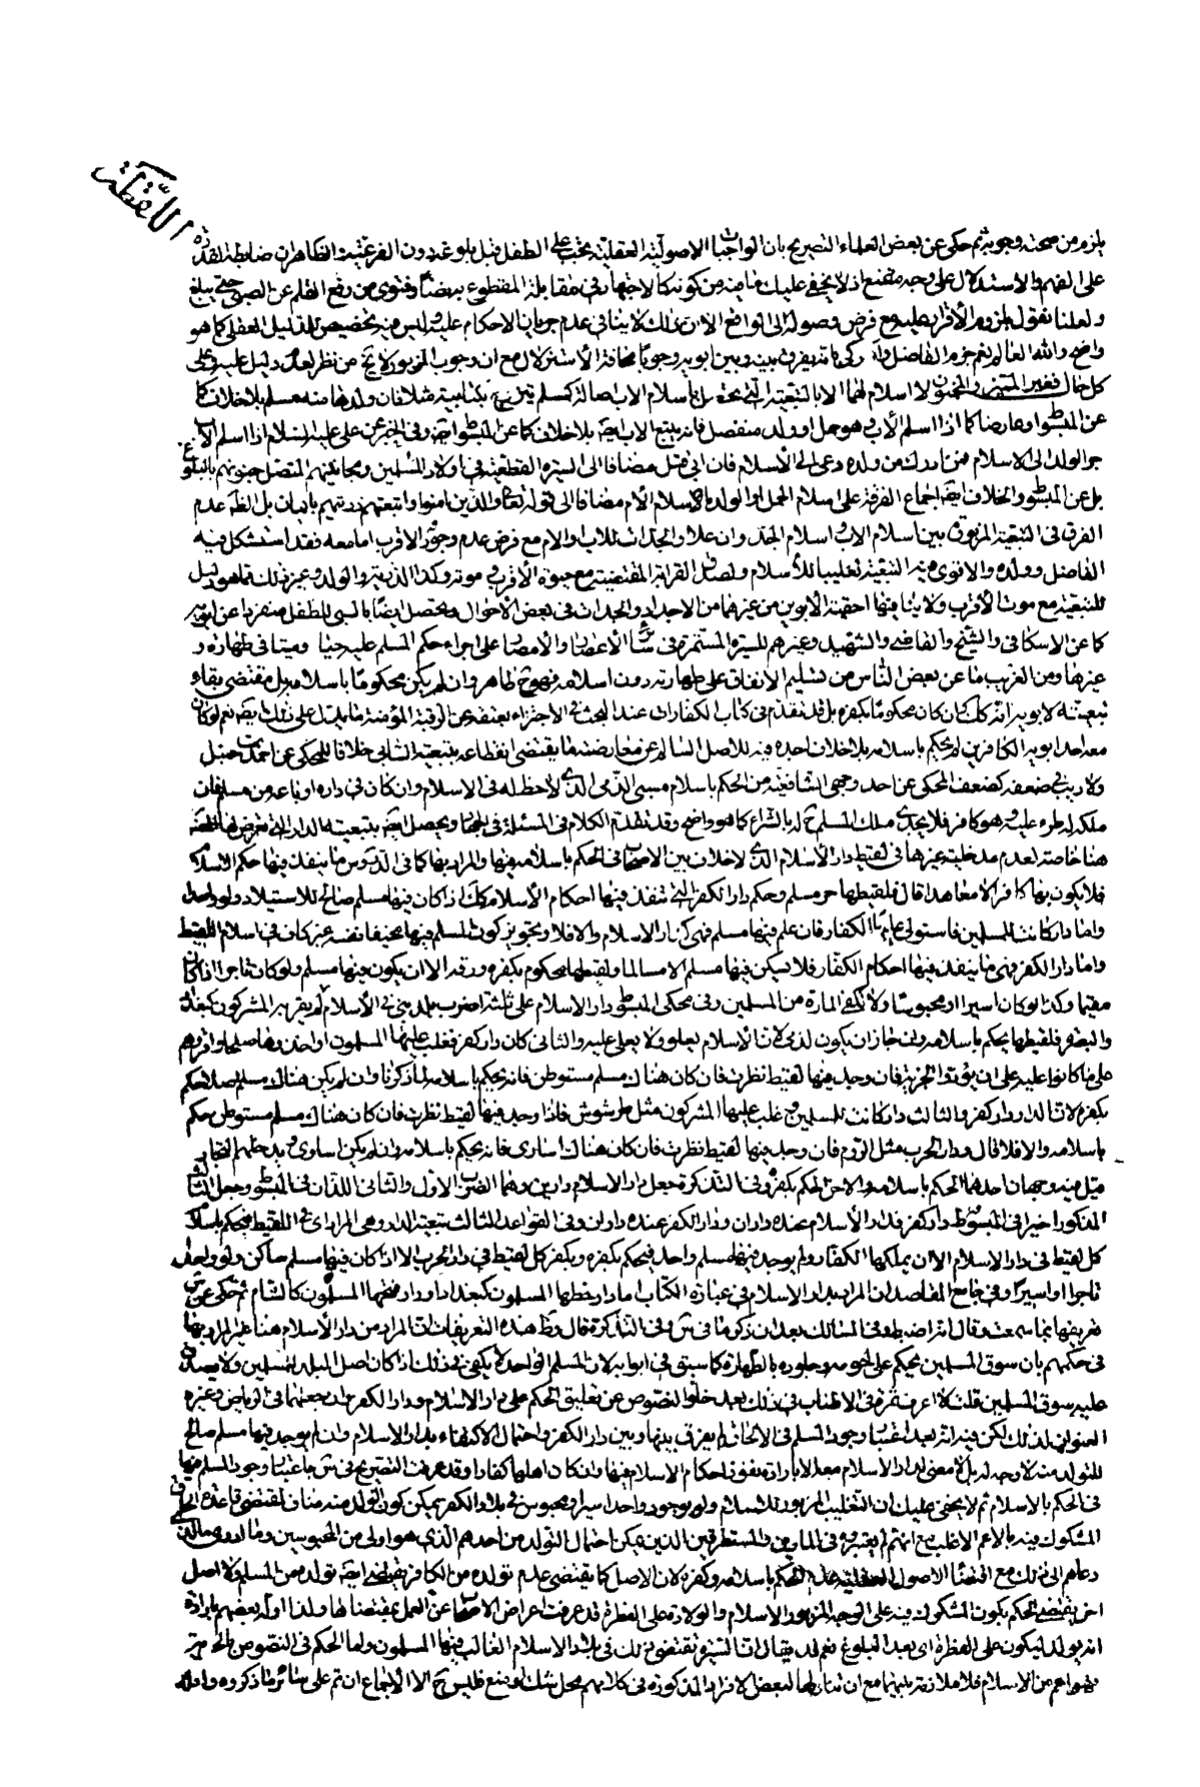 اللقطة
يلزم من صحته وجوبه ثم حكى عن بعض العلماء التصريح بان الواجبات الاصولية العقلية تجب على الطفل قبل بلوغه دون الفرعية الظاهر ان ضابطه القدرة
على الفهم والاستدلال على وجه مقنع اذ لا يخفى عليك ما فيه من كونه كالاجتهاد في مقابلة المقطوع به نصا وفتوى من رفع القلم عن الصبي حتى يبلغ
ولعلنا نقول بلزوم الأقرار عليه مع فرض وصوله الى الواقع الا ان ذلك لا ينافي عدم جريان الاحكام عليه وليس منه تخصيص للدليل العقلي كما هو
واضح والله العالم نعم جزم الفاضل بانه يفرق بينه وبين ابويه وجوبا مخافة الأستزلال مع ان وجوب المزبور لا يخ من نظر لعدم دليل عليه وعلى
كل حال فغير المميز والمجنون لا اسلام لهما الا بالتبعية التي تحصل باسلام الاب اصالة كمسلم تزوج بكتابية مثلا فان ولدها منه مسلم بلا خلاف كما
عن المبسوط او عارضا كما اذا اسلم الأب وهو حمل او ولد منفصل فانه يتبع الاب ايضا بلا خلاف كما عن المبسوط ايضا وفي الخبر عن علي عليه السلام اذا اسلم الاب
جر الولد الى الاسلام فمن ادرك من ولده دعى الى الأسلام فان ابى قتل مضافا الى السيرة القطعية في اولاد المسلمين ومجانينهم المتصل جنونهم بالبلوغ
بل عن المبسوط والخلاف ايضا اجماع الفرقة على اسلام الحمل او الولد باسلام الأم مضافا الى قوله تعالى والذين امنوا واتبعتهم ذريتهم بايمان بل الظاهر عدم
الفرق في التبعية المزبورة بين اسلام الاب واسلام الجد وان علا والجدات للاب او الام مع فرض عدم وجود الاقرب اما معه فقد استشكل فيه
الفاضل وولده والاقوى فيه التبعية تغليبا للأسلام ولصدق القرابة المقتضية مع حيوة الأقرب وموته وكذا الذرية والولد وغير ذلك مما هو دليل
للتبعية مع موت الأقرب ولا ينافيها احقية الأبوين من غيرهما من الاجداد والجدات في بعض الأحوال وتحصل ايضا بالسبي للطفل منفردا عن ابويه
كما عن الاسكافي والشيخ والقاضي والشهيد وغيرهم للسيرة المستمرة في سائر الأعصار والأمصار على اجراء حكم المسلم عليه حيا وميتا في طهارته و
غيرها ومن الغريب ما عن بعض الناس من تسليم الاتفاق على طهارته دون اسلامه فهو ح طاهر وان لم يكن محكوما باسلامه بل مقتضى بقاء
تبعيته لابويه انه كذلك كان محكوما بكفره بل قد تقدم في كتاب الكفارات عند البحث في الاجتزاء بعتقه عن الرقبة المؤمنة ما يدل على ذلك ايضا نعم لو كان
معه احد ابويه الكافرين لم يحكم باسلامه بلا خلاف اجده فيه للاصل السالم عن معارضته ما يقتضي انقطاعه بتبعية السابي خلافا للمحكى عن احمد بن حنبل
ولا ريب في ضعفه كضعف المحكى عن احد وجهي الشافعية من الحكم باسلام مسبي الذمي الذي لا حظ له في الاسلام وان كان في داره او باعه من مسلم فان
ملكه له طرء عليه وهو كافر فلا يجدي ملك المسلم ح له بالشراء كما هو واضح وقد تقدم الكلام في المسئلة في الجهاد ويحصل ايضا بتبعيته الدار
هنا خاصة لعدم مدخلية غيرها في لقيط دار الأسلام الذي لا خلاف بين الاصحاب في الحكم باسلامه فيها والمراد بها كما في الدروس ما ينفذ فيها حكم الاسلام
فلا يكون بها كافر الا معاهدا قال فلقيطها حر مسلم وحكم دار الكفر التي تنفذ فيها احكام الأسلام كذلك اذا كان فيها مسلم صالح للاستيلاد ولو واحد
واما دار كانت للمسلمين فاستولى عليها الكفار فان علم فيها مسلم فهي كدار الاسلام والا فلا وتجويز كون المسلم فيها مخفيا نفسه غير كاف في اسلام اللقيط
واما دار الكفر فهي ما ينفذ فيها احكام الكفار فلا يسكن فيها مسلم الا مسالما ولقيطها محكوم بكفره ورقه الا ان يكون فيها مسلم ولو كان تاجرا اذا كان
مقيما وكذا لو كان اسيرا او محبوسا ولا تكفي المارة من المسلمين وفي محكى المبسوط دار الاسلام على ثلثة اضرب بلد بني في الأسلام لم يقربه المشركون كبغداد
والبصرة فلقيطها يحكم باسلامه وان جاز ان يكون لذمي لان الأسلام يعلو ولا يعلى عليه والثاني كان دار كفر فغلب عليها المسلمون او اخذوها صلحا واقروهم
على ما كانوا عليه على ان يؤدوا الجزية فان وجد فيها لقيط نظرت فان كان هناك مسلم مستوطن فانه يحكم باسلامه لما ذكرنا وان لم يكن هناك مسلم اصلا حكم
بكفره لان الدار دار كفر والثالث دار كانت للمسلمين وغلب عليها المشركون مثل طرسوس فاذا وجد فيها لقيط نظرت فان كان هناك مسلم مستوطن حكم
باسلامه والا فلا قال ودار الحرب مثل الروم فان وجد فيها لقيط نظرت فان كان هناك اسارى فانه يحكم باسلامه وان لم يكن اسارى ويدخلهم التجار
قيل فيه وجهان احدهما الحكم باسلامه والاخر الحكم بكفره وفي التذكرة جعل دار الاسلام دارين وهما الضرب الاول والثاني اللذان في المبسوط وجعل الثالث
المذكور اخيرا في المبسوط دار كفر فدار الأسلام عنده داران ودار الكفر عنده داران وفي القواعد الثالث تبعية الدار وهي المراد في اللقيط فيحكم باسلام
كل لقيط في دار الاسلام الا ان يملكها الكفار ولم يوجد فيها مسلم واحد فيحكم بكفره وبكفر كل لقيط في دار الحرب الا اذا كان فيها مسلم ساكن ولو واحد
تاجرا او اسيرا وفي جامع المقاصد ان المراد بدار الاسلام في عبارة الكتاب اما دار خطها المسلمون كبغداد او دار فتحها المسلمون كالشام ثم حكى عن س
تعريفها بما سمعت وقال انه اضبط وفي المسالك بعد ان ذكر ما في س وفي التذكرة قال وظ هذه التعريفات ان المراد من دار الأسلام هنا غير المراد بها
في حكمهم بان سوق المسلمين يحكم على لحومه وجلوده بالطهارة كما سبق في ابوابه لان المسلم الواحد لا يكفي في ذلك اذا كان اصل البلد للمسلمين ولا يصدق
عليه سوق المسلمين قلت لا اعرف ثمرة في الاطناب في ذلك بعد خلو النصوص عن تعليق الحكم على دار الاسلام ودار الكفر
العنوان لذلك لكن فيه انه بعد اعتبار وجود المسلم في الالحاق لم يفرق بينها وبين دار الكفر واحتمال الاكتفاء بدار الاسلام وان لم يوجد فيها مسلم صالح
للتولد منه لا وجه له بل لا معنى لدار الاسلام
في الحكم بالاسلام ثم لا يخفى عليك ان التغليب المزبور للاسلام ولو بوجود واحد اسير او محبوس في بلاد الكفر يمكن كون التولد منه مناف لقتضى قاعدة الحاق
المشكوك فيه بالاعم الاغلب مع انهم لم يعتبروه في المارين والمستطرقين الذين يمكن احتمال التولد من احدهم الذي هو اولى من المحبوسين وما ادري ما الذي
دعاهم الى ذلك مع اقتضاء الاصول العقلية عدم الحكم باسلامه وكفره لان الاصل كما يقتضي عدم تولده من الكافر يقتضي ايضا تولده من المسلم ولا اصل
اخر يقتضي الحكم بكون المشكوك فيه على الوجه المزبور الاسلام والولادة على الفطرة قد عرفت اعراض الاصحاب عن العمل بمقتضاها ولذا اوله بعضهم بارادة
انه يولد ليكون على الفطرة اي بعد البلوغ نعم قد يقال ان السيرة تقتضي ذلك في بلاد الاسلام الغالب فيها المسلمون واما الحكم في النصوص بالحرية
فهو اعم من الاسلام فلا ملازمة بينهما مع ان تناولها لبعض الافراد المذكورة في كلامهم محل شك او منع فليس ح الا الاجماع ان تم على سائر ما ذكروه